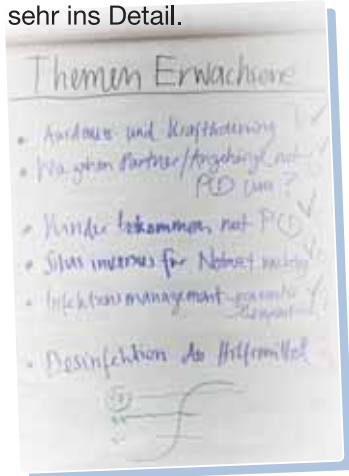 sehr ins Detail.
Themen Erwachsene
• Ausdauer und Kraftförderung
• Wie gehen Partner/Angehörige mit
PCD um?
• Kinder bekommen mit PCD
• Situs inversus für Notarzt wichtig
• Infektionsmanagement
• Desinfektion der Hilfsmittel